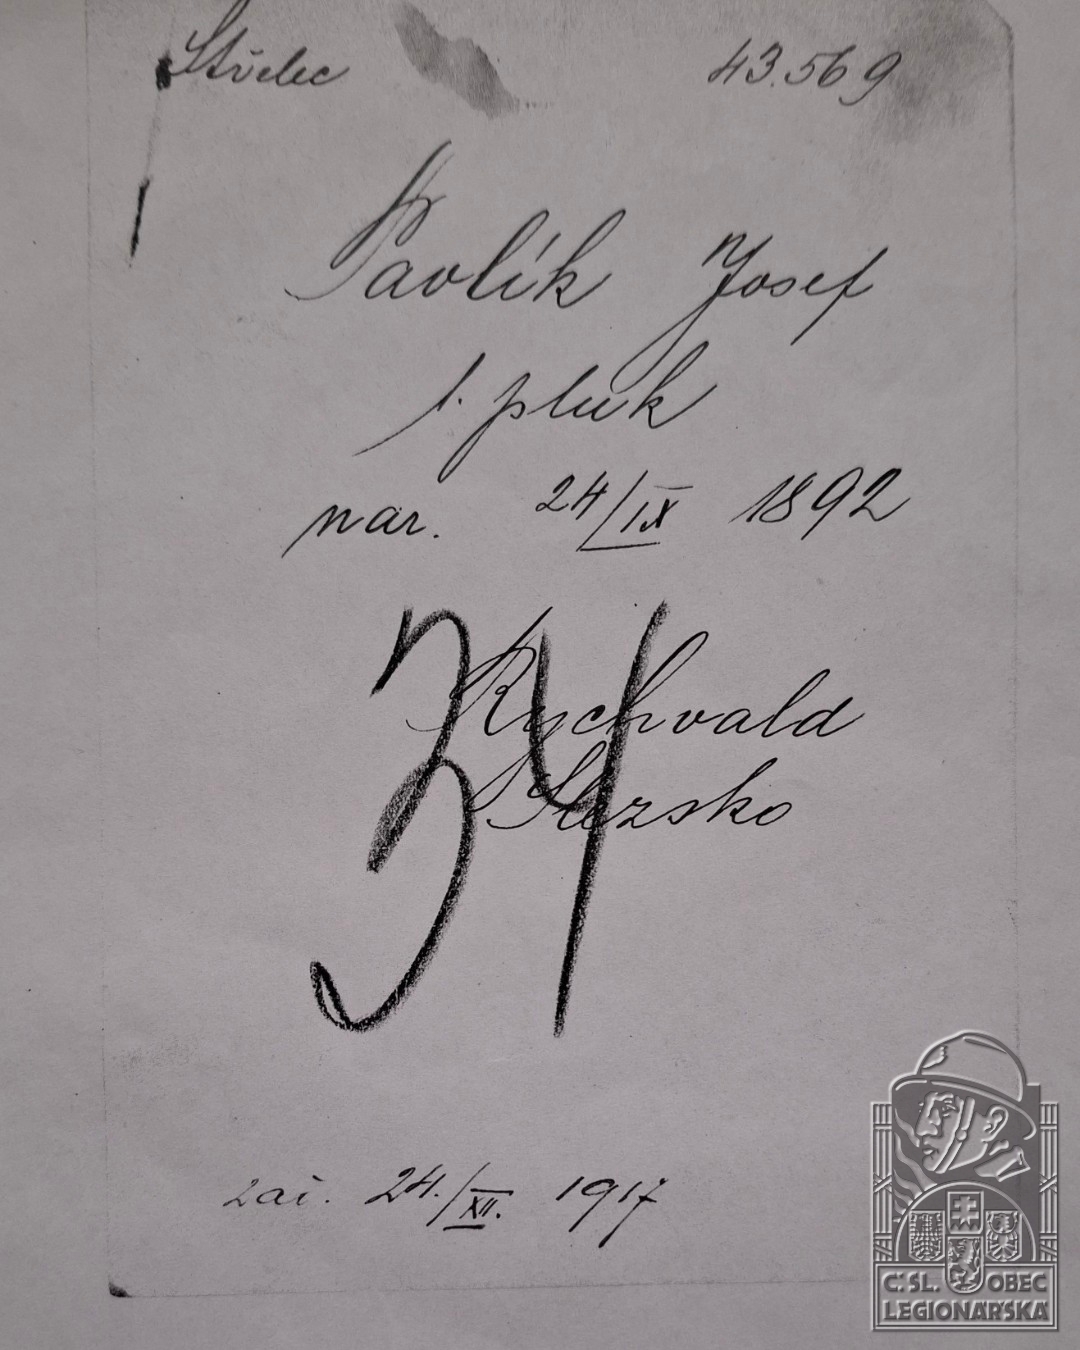 Střelec 43.569
Pavlík Josef
1. pluk
nar. 24/IX 1892
34
Rychvald
Slezsko
zai. 24./XII. 1917
Č.SL. OBEC
LEGIONÁŘSKÁ